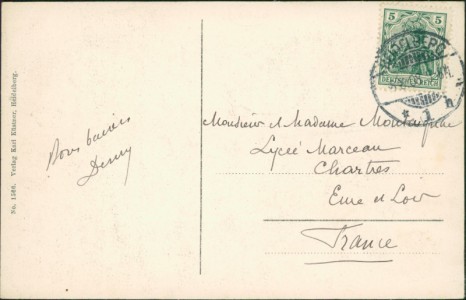 5 5
HEIDELBERG
DEUTSCHES REICH
* 1 h
Monsieur et Madame
Lycée Marceau
Chartres
Eure et Loir
France
Bons baisers
No. 1568. Verlag Karl Hünerr, Heidelberg.